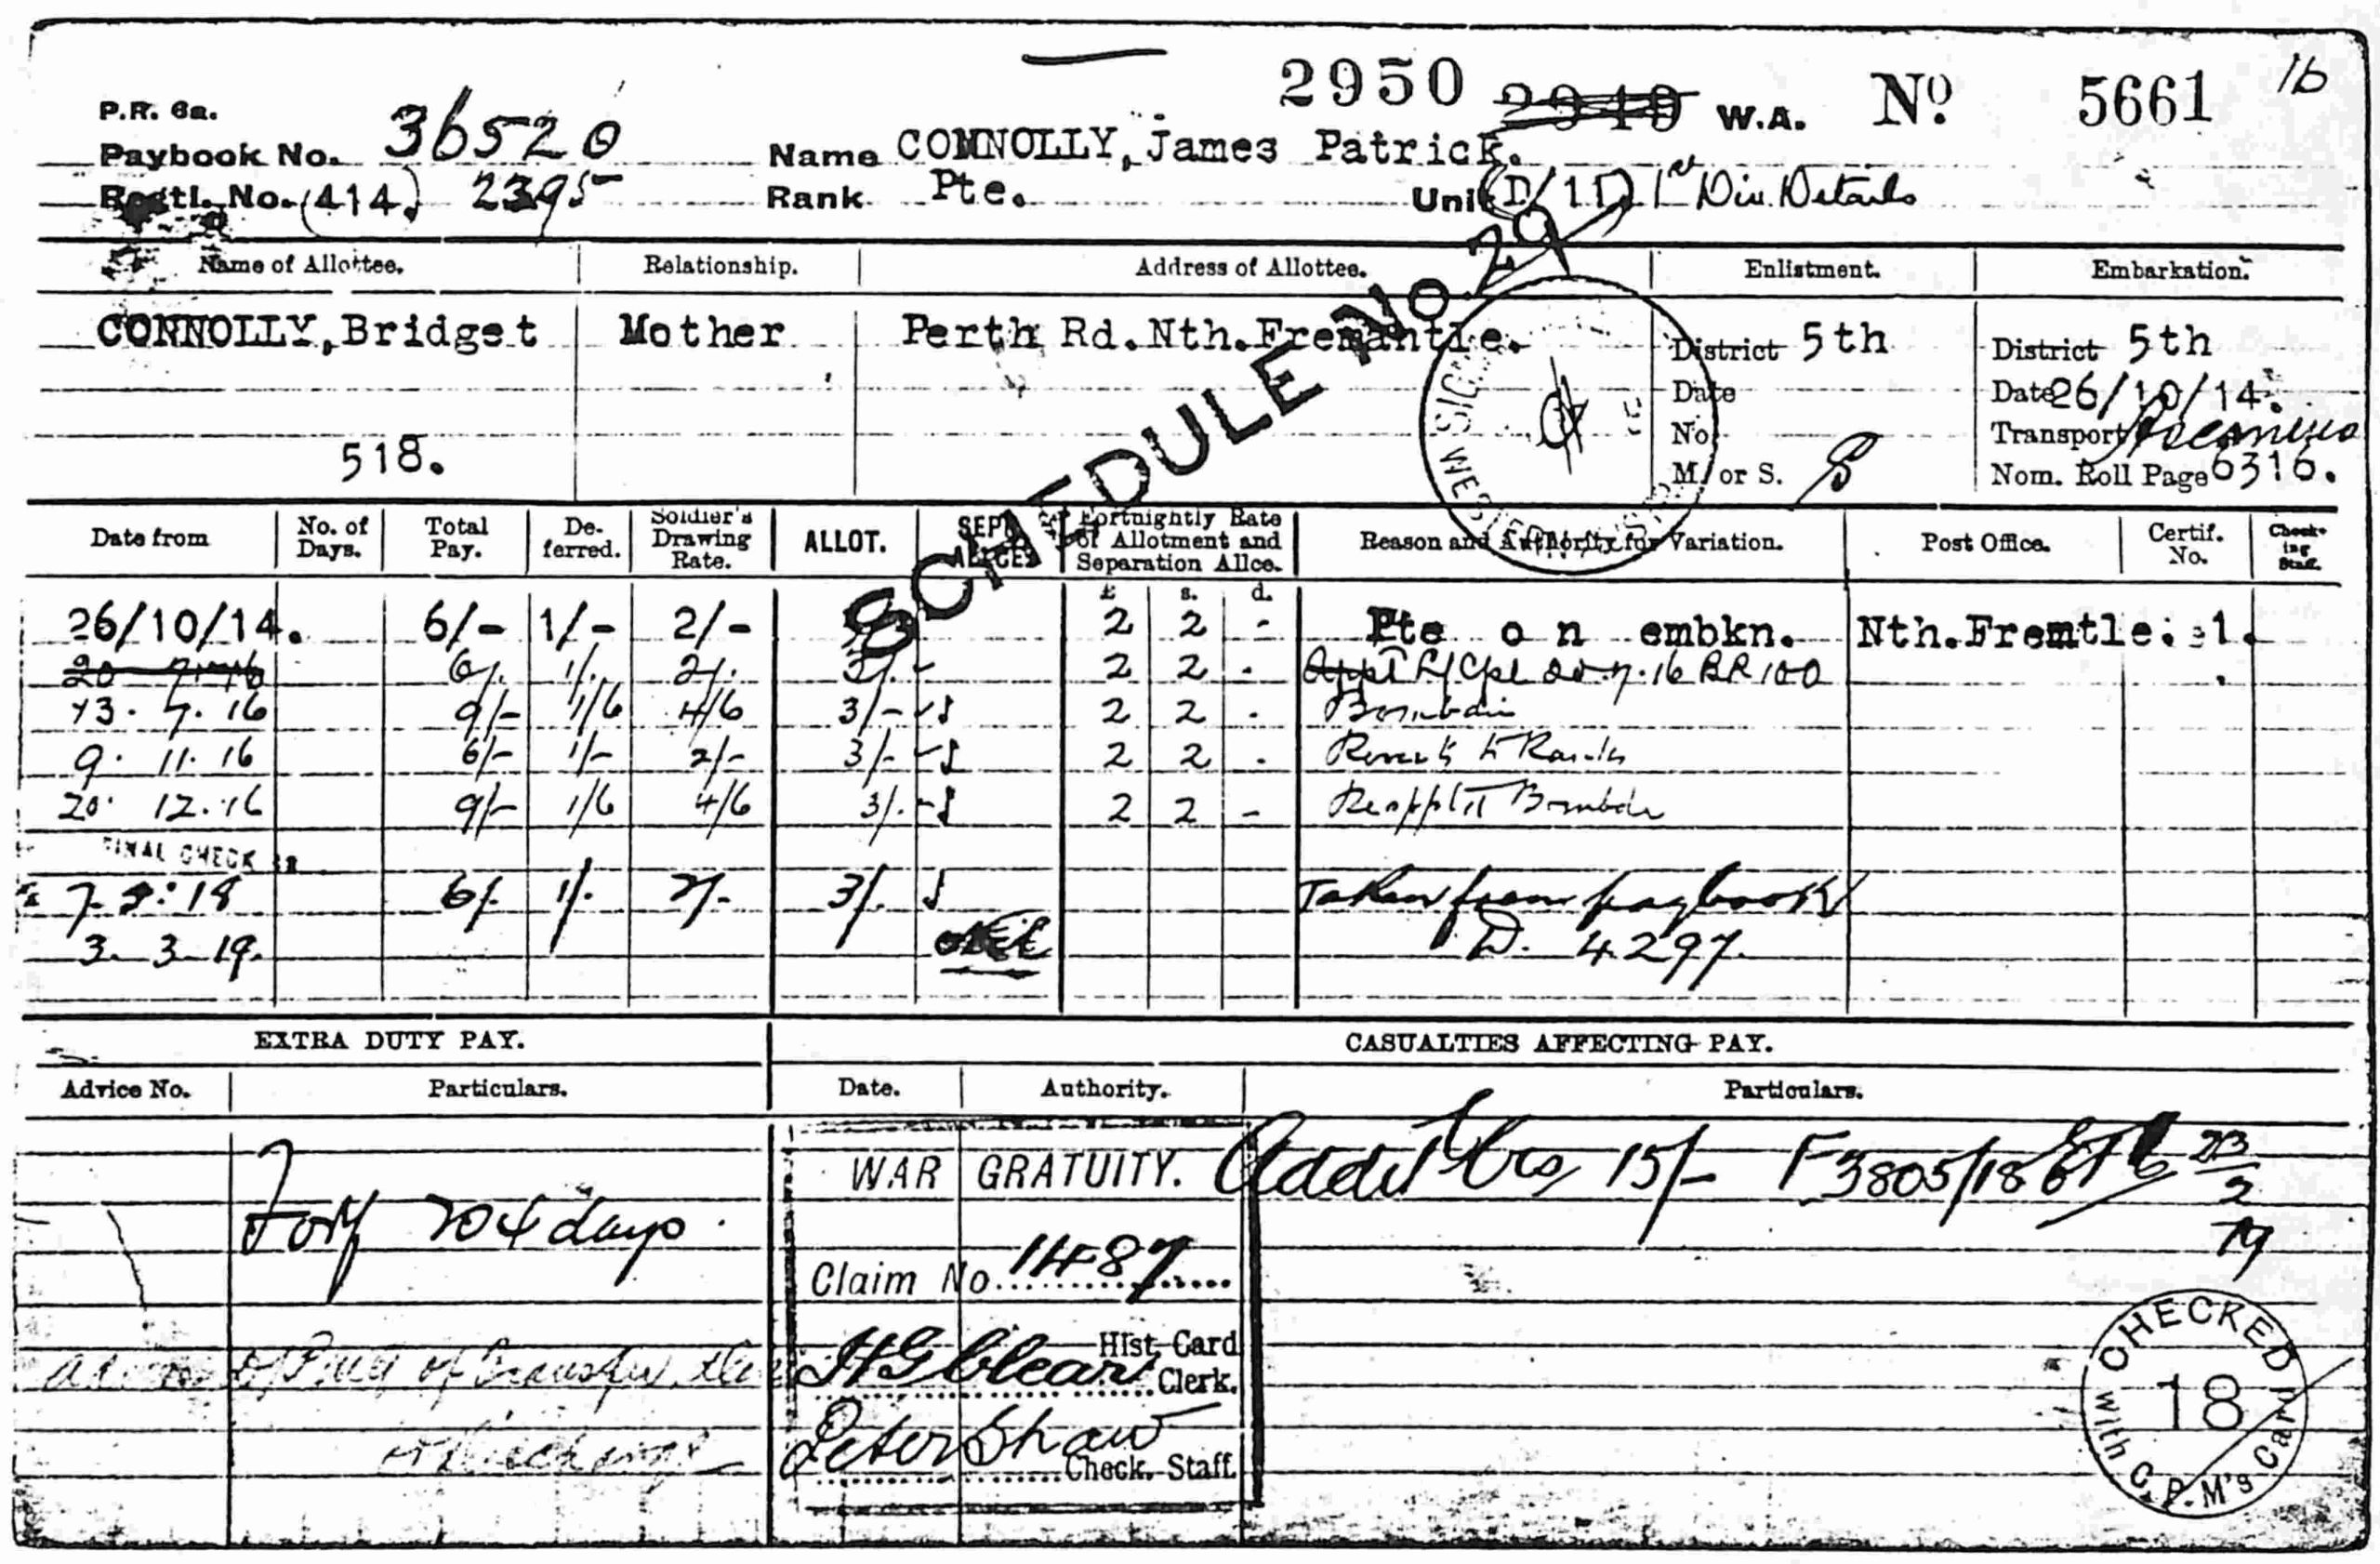 2950 2949 W.A. Nº 5661 16
P.R. 6a.
Paybook No. 36520 Name CONNOLLY, James Patrick.
Regtl. No. (414.) 2395 Rank Pte. Unit (D/11) 1st Div. Details
SCHEDULE No 29
Name of Allottee. Relationship. Address of Allottee. Enlistment. Embarkation.
CONNOLLY, Bridget Mother Perth Rd. Nth. Fremantle. District 5th District 5th
Date Date 26/10/14.
No. Transport Ascanius
518. M. or S. S Nom. Roll Page 6316.
Date from No. of Days. Total Pay. Deferred. Soldier's Drawing Rate. ALLOT. SEPN ALLCES Fortnightly Rate of Allotment and Separation Allce. Reason and Authority for Variation. Post Office. Certif. No. Checking Staff.
£ s. d.
26/10/14. 6/- 1/- 2/- 2 2 - Pte on embkn. Nth. Fremtle. 1.
20 7 16 6/. 1/. 2/. 3/. - 2 2 - Appt L/Cpl 20.7.16 BR 100
13. 7. 16 9/- 1/6 4/6 3/- 2 2 - Bombdir
9. 11. 16 6/- 1/- 2/- 3/- 2 2 - Reverts to Ranks
20. 12. 16 9/- 1/6 4/6 3/. 2 2 - Reapptd Bombdr
FINAL CHECK
7 18 6/. 1/. 2/. 3/. Taken from paybook
3. 3. 19. D. 4297.
EXTRA DUTY PAY. CASUALTIES AFFECTING PAY.
Advice No. Particulars. Date. Authority. Particulars.
WAR GRATUITY. 15/- F3805/18 23/2/19
Forf 204 days.
Claim No. 1487
of Transfer
Hist. Card Clerk.
discharge Peter Shaw
Check. Staff.
CHECKED 18 with C.P.M's Card